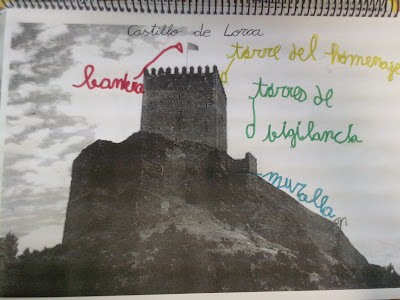 Castillo de Lorca
torre del homenaje
bandera
torres de
bigilancia
muralla